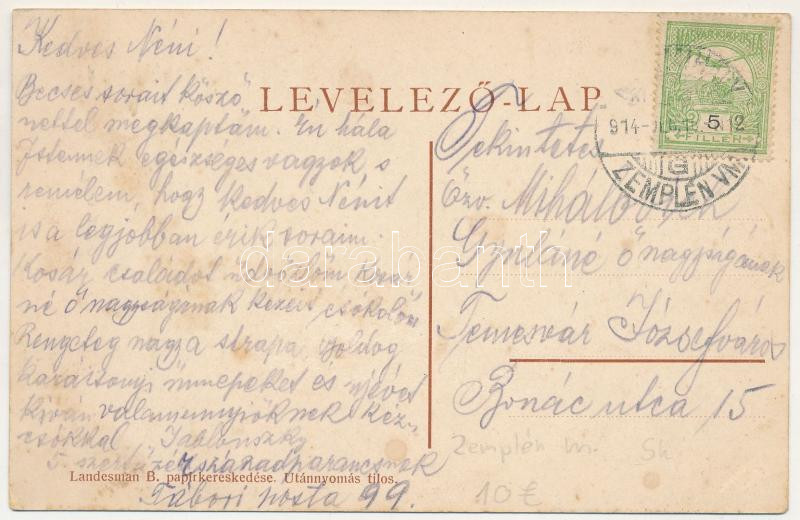 Kedves Néni!
Becses sorait köszö
LEVELEZŐ-LAP
nettel megkaptam. Én hála
Istennek egészséges vagyok s
remélem, hogy kedves Nénit
is a legjobban érik soraim.
Kosár családot üdvözlöm, Kosár
né ő nagyságának kezeit csókolom
Rengeteg nagy a strapa, boldog
karátsonyi ünnepeket és ujévet
kíván valamennyiöknek kéz-
csókkal Jablonszky
századparancsnok
Landesman B. papirkereskedése. Utánnyomás tilos.
Tábori posta 99.
MAGYAR KIR. POSTA
5
FILLÉR
914
G
ZEMPLÉN VM
Tekintetes
Özv. Mihálovich
Gyuláné őnagyságának
Temesvár Józsefváros
Bonác utca 15
Zemplén vm. Sk.
10 €
darabanth